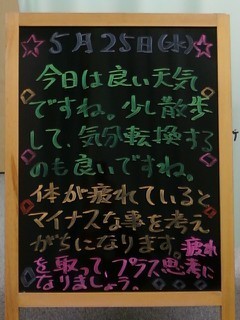 5月25日(水)
今日は良い天気
ですね。少し散歩
して、気分転換する
のも良いですね。
体が疲れていると
マイナスな事を考え
がちになります。疲れ
を取って、プラス思考に
なりましょう。